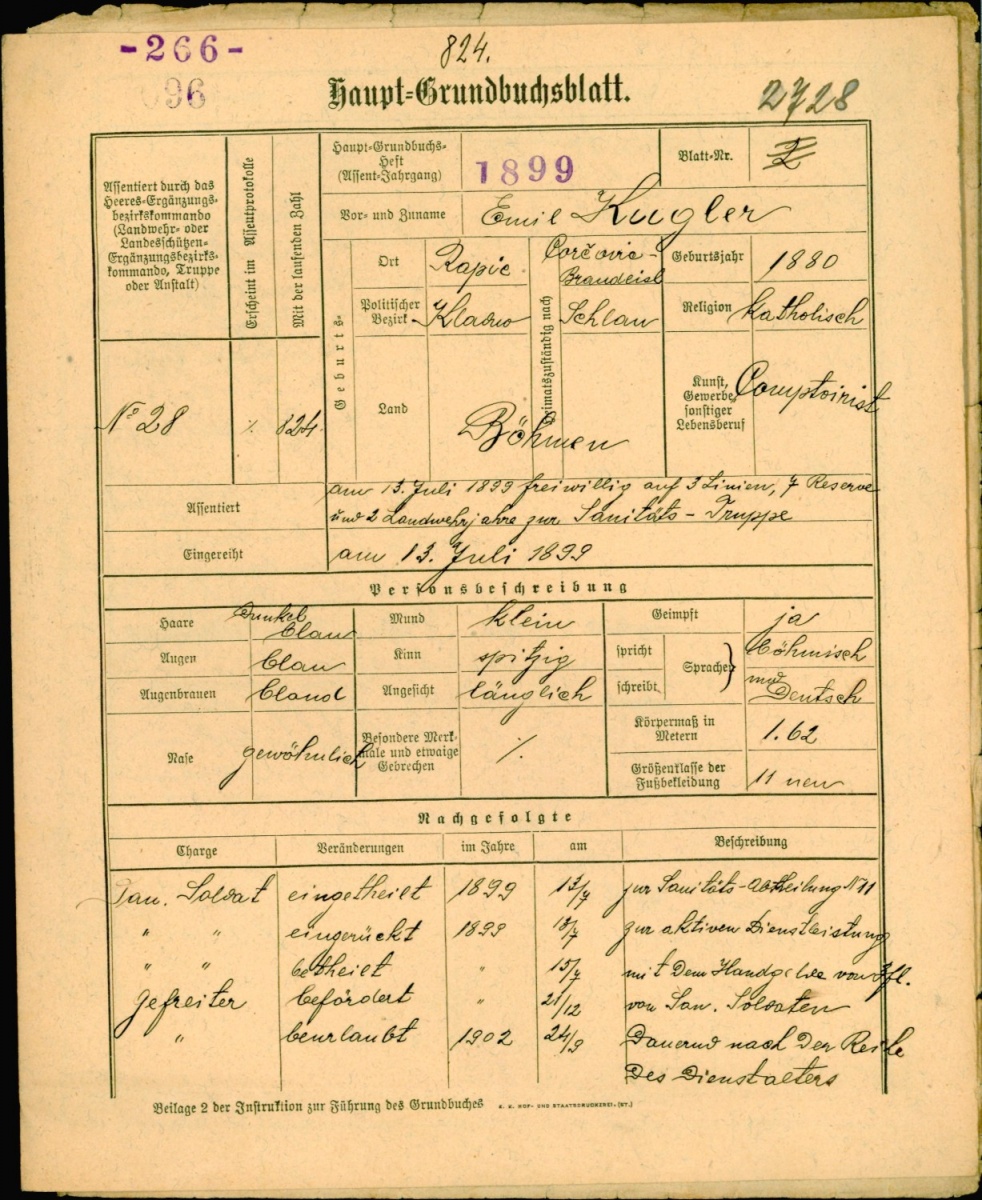 -266-
96
824.
2728
Haupt=Grundbuchsblatt.
Assentiert durch das
Heeres-Ergänzungs-
bezirkskommando
(Landwehr- oder
Landesschützen-
Ergänzungsbezirks-
kommando, Truppe
oder Anstalt)
Erscheint im Assentprotokolle
Mit der laufenden Zahl
No 28
%
824
Haupt-Grundbuchs-
Heft
(Assent-Jahrgang)
1899
Blatt-Nr.
2
Vor- und Zuname
Emil Kugler
Geburts-
Ort
Rapic
Politischer
Bezirk
Kladno
Land
Böhmen
Heimatszuständig nach
Brandeisl
Schlan
Geburtsjahr
1880
Religion
Katholisch
Kunst,
Gewerbe,
sonstiger
Lebensberuf
Comptoirist
Assentiert
am 13. Juli 1899 freiwillig auf 3 Linien, 7 Reserve
und 2 Landwehrjahre zur Sanitäts-Truppe
Eingereiht
am 13. Juli 1899
Personsbeschreibung
Haare
Dunkel
Augen
blau
Augenbrauen
bland
Nase
gewöhnlich
Mund
klein
Kinn
spitzig
Angesicht
länglich
Besondere Merk-
male und etwaige
Gebrechen
%
Geimpft
ja
spricht
schreibt
Sprache
böhmisch
und
Deutsch
Körpermaß in
Metern
1.62
Größenklasse der
Fußbekleidung
11 neu
Nachgefolgte
Charge Veränderungen im Jahre am Beschreibung
San. Soldat eingetheilt 1899 13/7 zur Sanitäts-Abtheilung No 11
" " eingerückt 1899 13/7 zur aktiven Dienstleistung
" " betheilt " 15/7 mit dem Handgelde von fl.
Gefreiter befördert " 21/12 von San. Soldaten
" beurlaubt 1902 24/9 Dauernd nach der Reihe
des Dienstalters
Beilage 2 der Instruktion zur Führung des Grundbuches K. K. HOF- UND STAATSDRUCKEREI. (ST.)